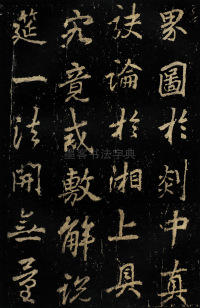 界圖於剡中真
訣論於湘上具
究竟戒敷解脱
筵一法開無量
书法字典